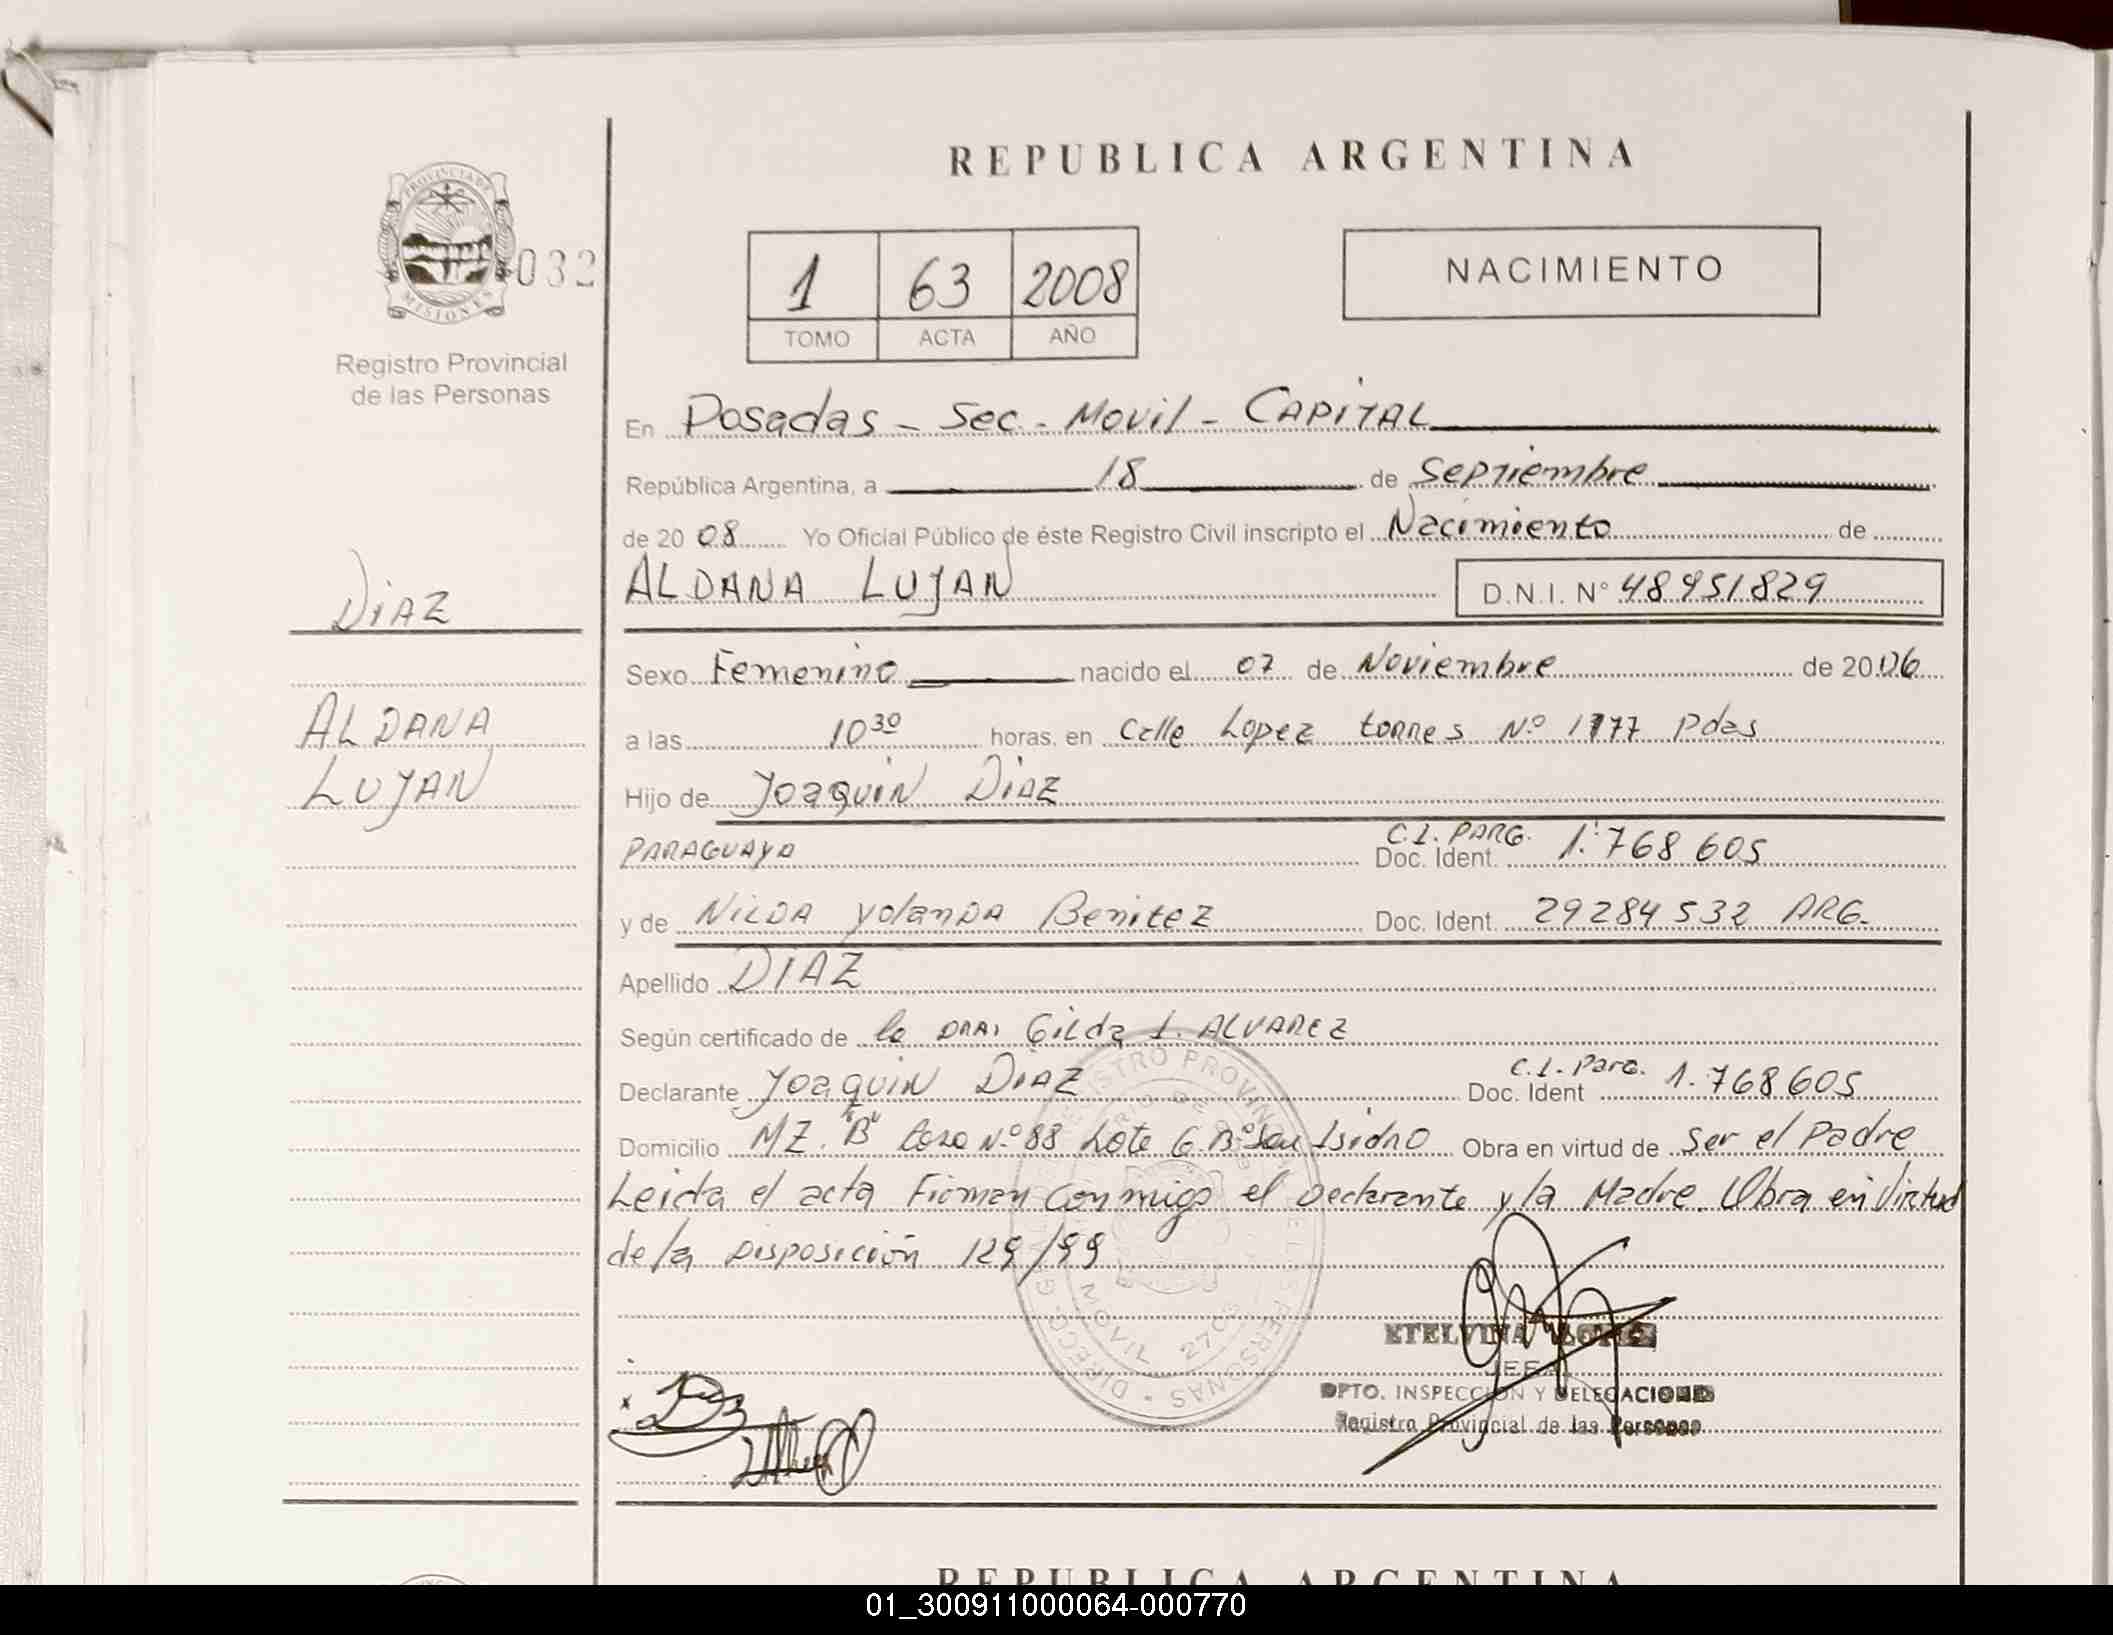 REPUBLICA ARGENTINA
PROVINCIA DE
MISIONES
032
Registro Provincial
de las Personas
1 63 2008
TOMO ACTA AÑO
NACIMIENTO
En Posadas - Sec. - Movil - CAPITAL
República Argentina, a 18 de Septiembre
de 20 08 Yo Oficial Público de éste Registro Civil inscripto el Nacimiento de
DIAZ
ALDANA LUJAN D.N.I. N° 48951829
Sexo Femenino nacido el 07 de Noviembre de 2006
ALDANA
a las 10 30 horas, en Calle Lopez torres Nº 1177 Pdas
LUJAN
Hijo de Joaquin Diaz
PARAGUAYO C.I. PARG. Doc. Ident. 1.768 605
y de Nilda Yolanda Benitez Doc. Ident. 29284532 ARG.
Apellido DIAZ
Según certificado de la DRA. Gilda I. ALVAREZ
Declarante Joaquin DiAZ C.I. Parg. Doc. Ident 1.768605
Domicilio MZ. "B" Casa Nº 88 Lote 6 Bº San Isidro Obra en virtud de Ser el Padre
Leida el acta Firman Conmigo el Declarante y la Madre. Obra en Virtud
de la Disposición 129/99
MOVIL 2703
ETELVINA
JEFA
DPTO. INSPECCION Y DELEGACIONES
Registro Provincial de las Personas
REPUBLICA ARGENTINA
01_300911000064-000770